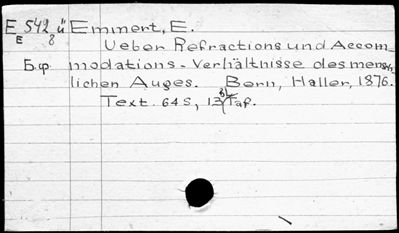 E 542 ü Emmert, E.
E 8 Ueber Refractions und Accom-
Б.ф modations-Verhältnisse des mensch-
lichen Auges. Bern, Haller, 1876.
Text. 64 S, 13 Bl. Taf.